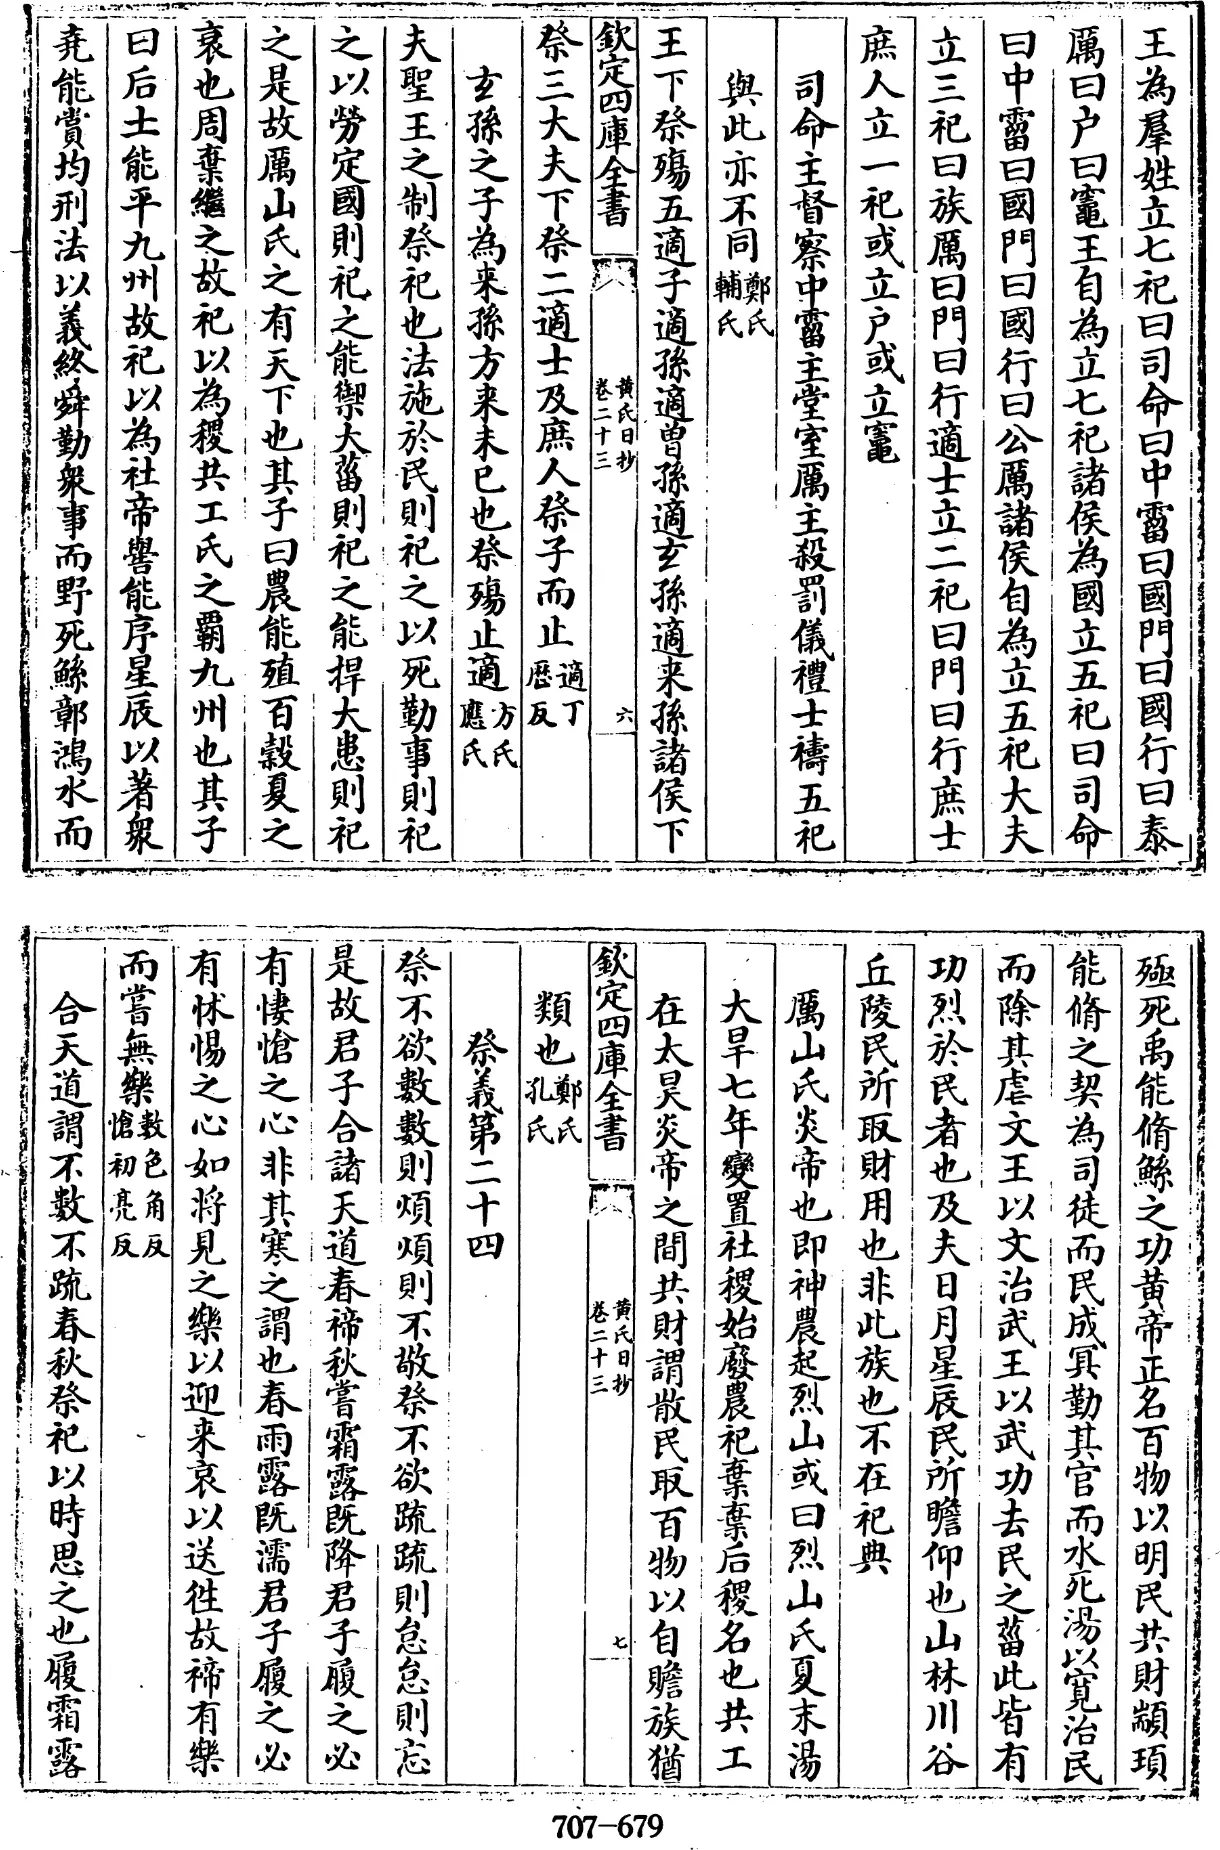 王為羣姓立七祀曰司命曰中霤曰國門曰國行曰泰
厲曰户曰竈王自為立七祀諸侯為國立五祀曰司命
曰中霤曰國門曰國行曰公厲諸侯自為立五祀大夫
立三祀曰族厲曰門曰行適士立二祀曰門曰行庶士
庶人立一祀或立户或立竈
司命主督察中霤主堂室厲主殺罰儀禮士禱五祀
與此亦不同鄭氏輔氏
王下祭殤五適子適孫適曾孫適玄孫適来孫諸侯下
欽定四庫全書
黄氏日抄
卷二十三
六
祭三大夫下祭二適士及庶人祭子而止適丁歴反
玄孫之子為来孫方来未已也祭殤止適方氏應氏
夫聖王之制祭祀也法施於民則祀之以死勤事則祀
之以勞定國則祀之能禦大菑則祀之能捍大患則祀
之是故厲山氏之有天下也其子曰農能殖百穀夏之
衰也周棄繼之故祀以為稷共工氏之霸九州也其子
曰后土能平九州故祀以為社帝嚳能序星辰以著衆
堯能賞均刑法以義終舜勤衆事而野死鯀鄣鴻水而
殛死禹能脩鯀之功黄帝正名百物以明民共財顓頊
能脩之契為司徒而民成冥勤其官而水死湯以寛治民
而除其虐文王以文治武王以武功去民之菑此皆有
功烈於民者也及夫日月星辰民所瞻仰也山林川谷
丘陵民所取財用也非此族也不在祀典
厲山氏炎帝也即神農起烈山或曰烈山氏夏末湯
大旱七年變置社稷始廢農祀棄棄后稷名也共工
在太昊炎帝之間共財謂散民取百物以自贍族猶
欽定四庫全書
黄氏日抄
卷二十三
七
類也鄭氏孔氏
祭義第二十四
祭不欲數數則煩煩則不敬祭不欲疏疏則怠怠則忘
是故君子合諸天道春禘秋嘗霜露既降君子履之必
有悽愴之心非其寒之謂也春雨露既濡君子履之必
有怵惕之心如將見之樂以迎来哀以送徃故禘有樂
而嘗無樂數色角反愴初亮反
合天道謂不數不疏春秋祭祀以時思之也履霜露
707-679